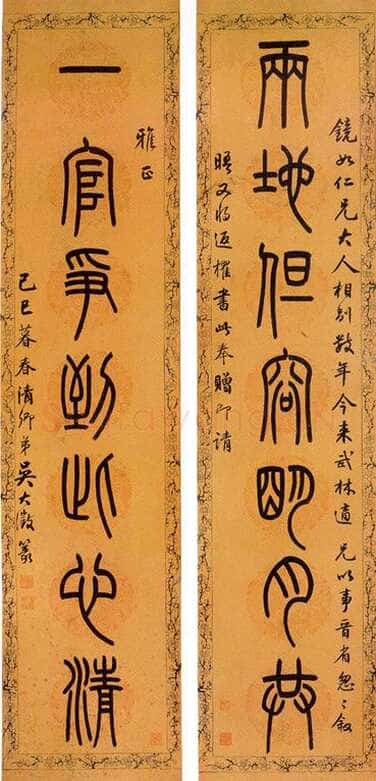 鏡如仁兄大人相别數年今来武林適 兄以事晋省怱〻敘
兩地但容明月共
晤又將返櫂書此奉贈即請
雅正
一官爭到此心清
己巳暮春清卿弟吳大澂篆